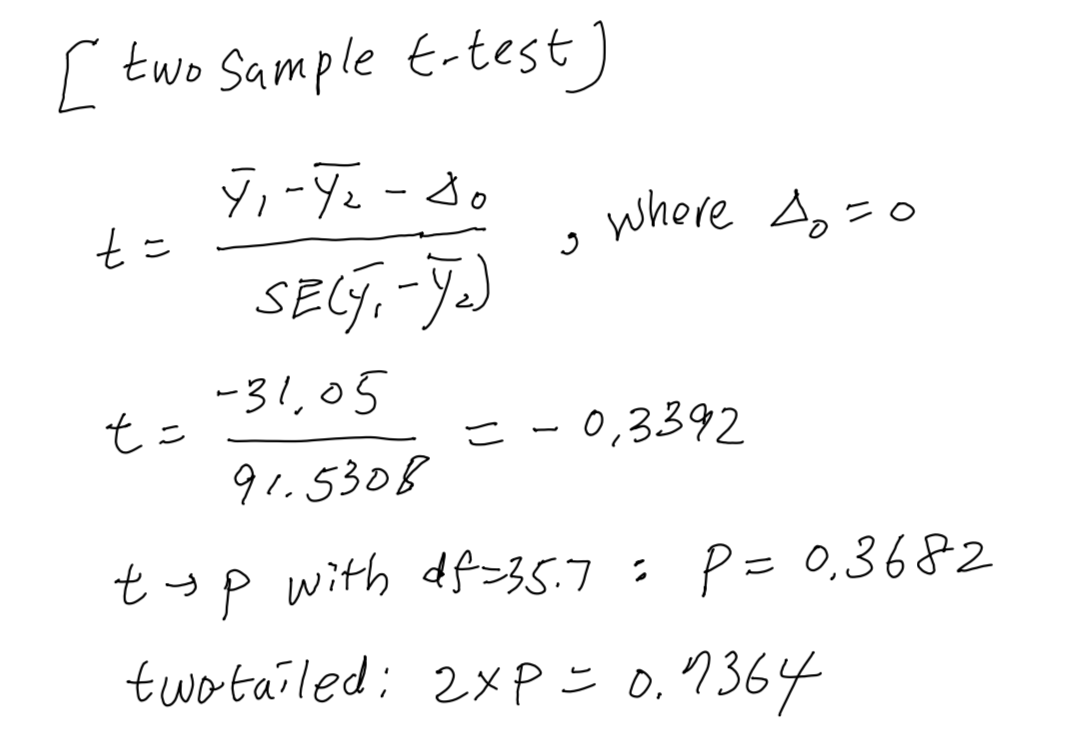 [two Sample t-test)
t = (ȳ₁ - ȳ₂ - Δ₀) / SE(ȳ₁ - ȳ₂) , where Δ₀ = 0
t = -31.05 / 91.5308 = - 0,3392
t → p with df=35.7 : P = 0.3682
two tailed: 2×P = 0.7364